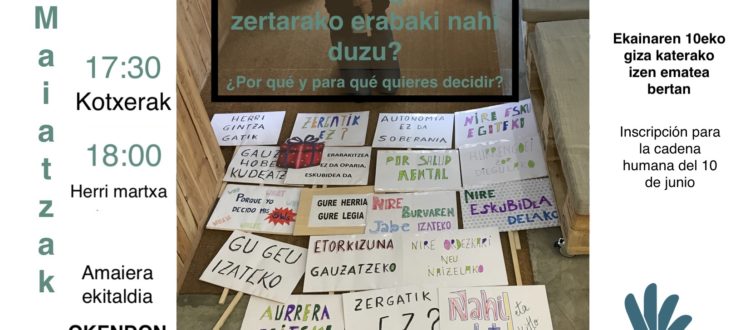 Maiatzak
17:30
Kotxerak
18:00
Herri martxa
Amaiera
ekitaldia
OKENDON
zertarako erabaki nahi
duzu?
¿Por qué y para qué quieres decidir?
HERRI
GINTZA
GATIK
ZERGATIK
EZ?
AUTONOMIA
EZ DA
SOBERANIA
NIRE ESKU
EGITEKO
GAUZ
HOBE
KUDEATZ
ERABAKITZEA
EZ DA OPARIA,
ESKUBIDEA DA
POR SALUD
MENTAL
PORQUE YO
DECIDO MIS
GURE HERRIA
GURE LEGIA
NIRE
BURUAREN
JABE IZATEKO
NIRE
ESKUBIDEA
DELAKO
GU GEU
IZATEKO
ETORKIZUNA
GAUZATZEKO
NIRE ORDEZKARI
NEU
NAIZELAKO
AURRERA
EGITEKO
ZERGATIK
EZ?
Nahi
Ekainaren 10eko
giza katerako
izen ematea
bertan
Inscripción para
la cadena
humana del 10
de junio